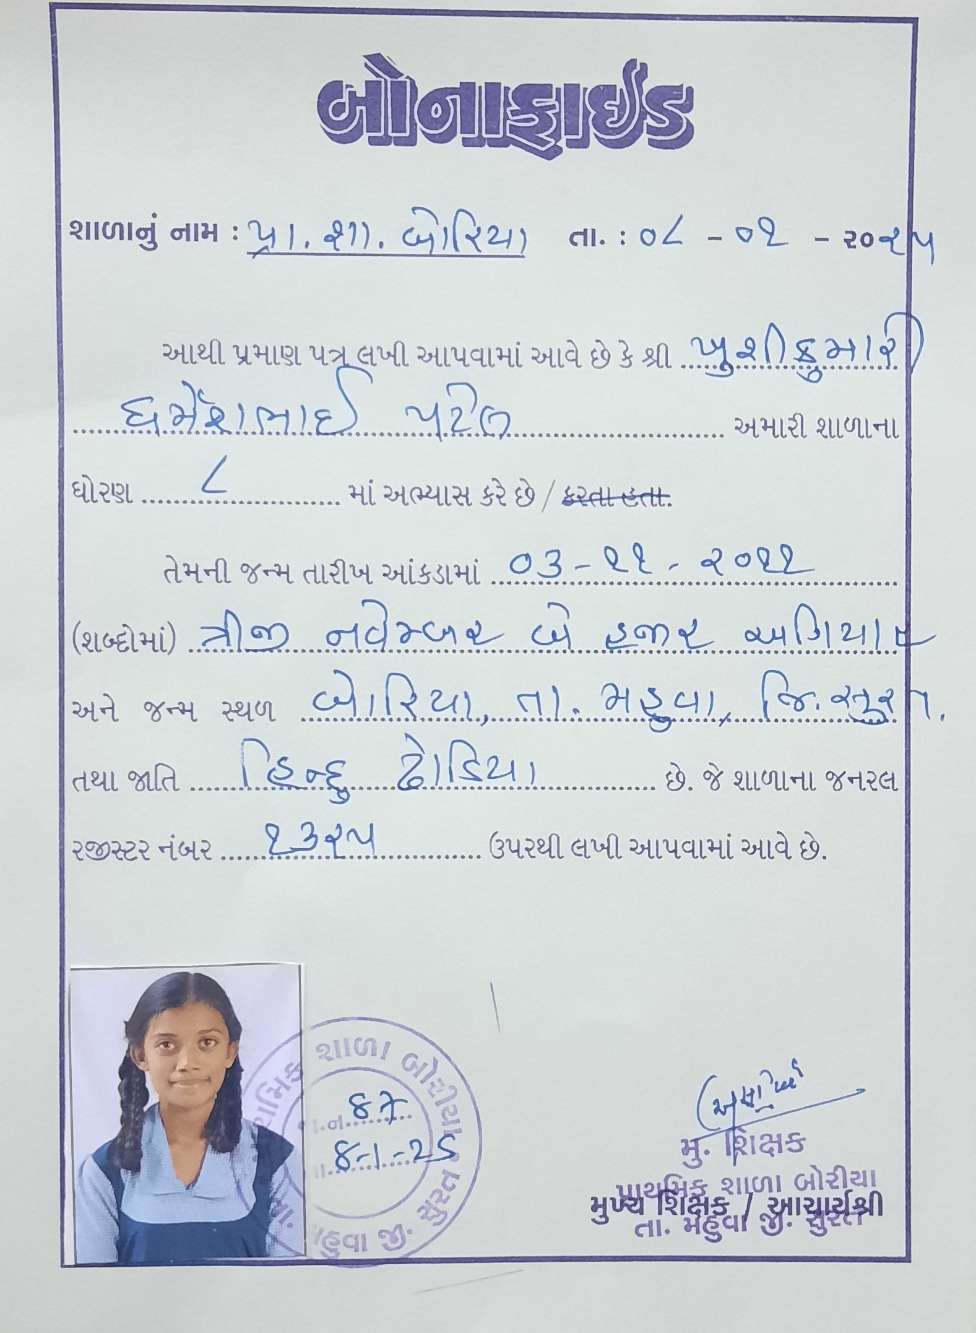 બોનાફાઈડ
શાળાનું નામ : પ્રા. શા. બોરિયા તા. : ૦૮ - ૦૧ - ૨૦૨૫
આથી પ્રમાણ પત્ર લખી આપવામાં આવે છે કે શ્રી ખુશીકુમારી
ધર્મેશભાઈ પટેલ અમારી શાળાના
ધોરણ ૮ માં અભ્યાસ કરે છે / કરતા હતા.
તેમની જન્મ તારીખ આંકડામાં ૦૩-૧૧-૨૦૧૧
(શબ્દોમાં) ત્રીજી નવેમ્બર બે હજાર અગિયાર
અને જન્મ સ્થળ બોરિયા, તા. મહુવા, જિ. સુરત.
તથા જાતિ હિન્દુ ઢોડિયા છે. જે શાળાના જનરલ
રજીસ્ટર નંબર ૧૩૨૫ ઉપરથી લખી આપવામાં આવે છે.
શાળા બોરીયા
મહુવા જી. સુરત
8-1-25
મુ. શિક્ષક
પ્રાથમિક શાળા બોરીયા
મુખ્ય શિક્ષક / આચાર્યશ્રી
તા. મહુવા જી. સુરત